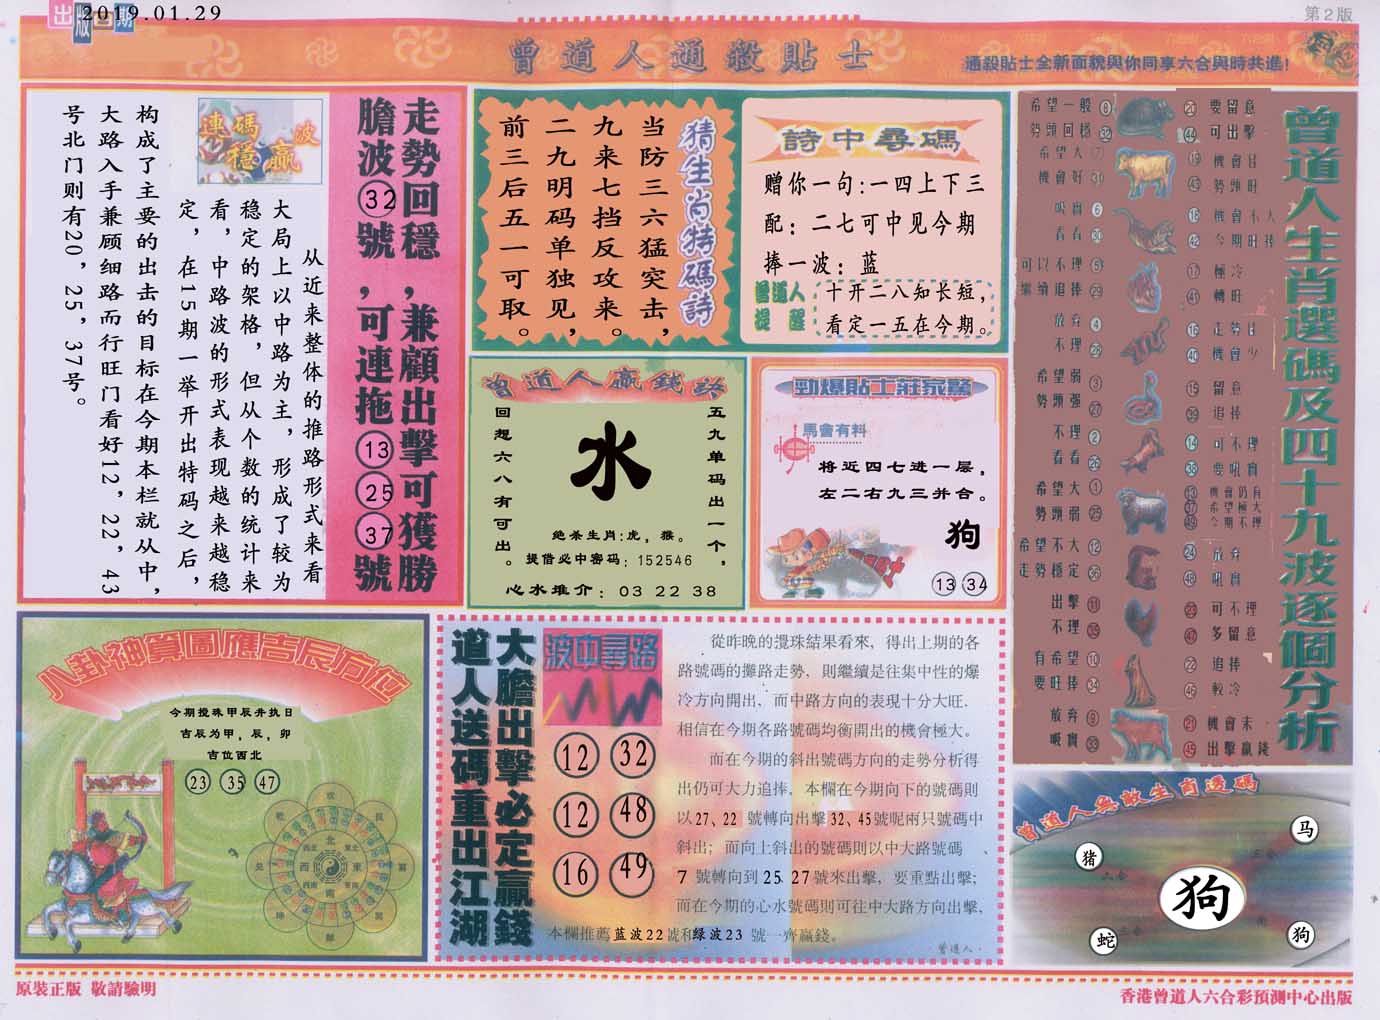 出版日期
2019.01.29
第2版
曾道人通殺貼士
通殺貼士全新面貌與你同享六合與時共進!
走勢回穩,兼顧出擊可獲勝
膽波32號,可連拖13 25 37號
連碼波
穩贏
从近来整体的推路形式来看
大局上以中路为主,形成了较为
稳定的架格,但从个数的统计来
看,中路波的形式表现越来越稳
定,在15期一举开出特码之后,
构成了主要的出击的目标在今期本栏就从中,
大路入手兼顾细路而行旺门看好12,22,43
号北门则有20,25,37号。
猜生肖特碼詩
当防三六猛突击,
九来七挡反攻来。
二九明码单独见,
前三后五一可取。
詩中尋碼
赠你一句:一四上下三
配:二七可中见今期
捧一波:蓝
曾道人
提醒
十开二八知长短,
看定一五在今期。
曾道人贏錢詩
五九单码出一个,
回想六八有可出。
水
绝杀生肖:虎,猴。
提借必中密码:152546
心水堆介:03 22 38
勁爆貼士莊家驚
馬會有料
将近四七进一层,
左二右九三并合。
狗
13 34
曾道人生肖選碼及四十九波逐個分析
希望一般 8 20 要留意
勢頭回穩 32 44 可出擊
希望大 7 19 機會佳
機會好 31 43 勢頭旺
吸實 6 18 機會不大
看看 30 42 今期旺捧
可以不理 5 17 極冷
繼續追捧 29 41 轉旺
放弃 4 16 走勢佳
不理 28 40 機會少
希望弱 3 15 留意
勢頭强 27 39 追捧
不理 2 14 可不理
看看 26 38 要吼實
希望大 1 13 機會仍有
勢頭弱 25 37 希望極大
49 今期不理
希望不大 12 24 放弃
走勢穩定 36 48 吼實
出擊 11 23 可不理
不理 35 47 多留意
有希望 10 22 追捧
要旺捧 34 46 較冷
放弃 9 21 機會未
吸實 33 45 出擊贏錢
八卦神算圖應吉辰方位
今期搅珠甲辰井执日
吉辰为甲,辰,卯
吉位西北
23 35 47
北
西 東
南
大膽出擊必定贏錢
道人送碼重出江湖
波中尋路
12 32
12 48
16 49
從昨晚的攪珠結果看來，得出上期的各
路號碼的攤路走勢，則繼續是往集中性的爆
冷方向開出，而中路方向的表現十分大旺.
相信在今期各路號碼均衡開出的機會極大。
而在今期的斜出號碼方向的走勢分析得
出仍可大力追捧，本欄在今期向下的號碼則
以27、22 號轉向出擊32、45號呢兩只號碼中
斜出；而向上斜出的號碼則以中大路號碼、
7 號轉向到25 27號來出擊，要重點出擊；
而在今期的心水號碼則可往中大路方向出擊，
本欄推薦蓝波22號和绿波23 號一齊贏錢。
曾道人.
曾道人無敵生肖透碼
马
猪
六合
狗
蛇
狗
原裝正版 敬請驗明
香港曾道人六合彩預測中心出版